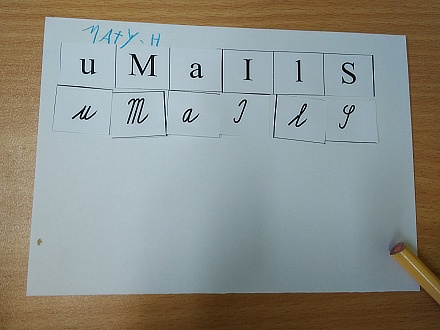 MATY. H
u M a I l S
u M a I l S